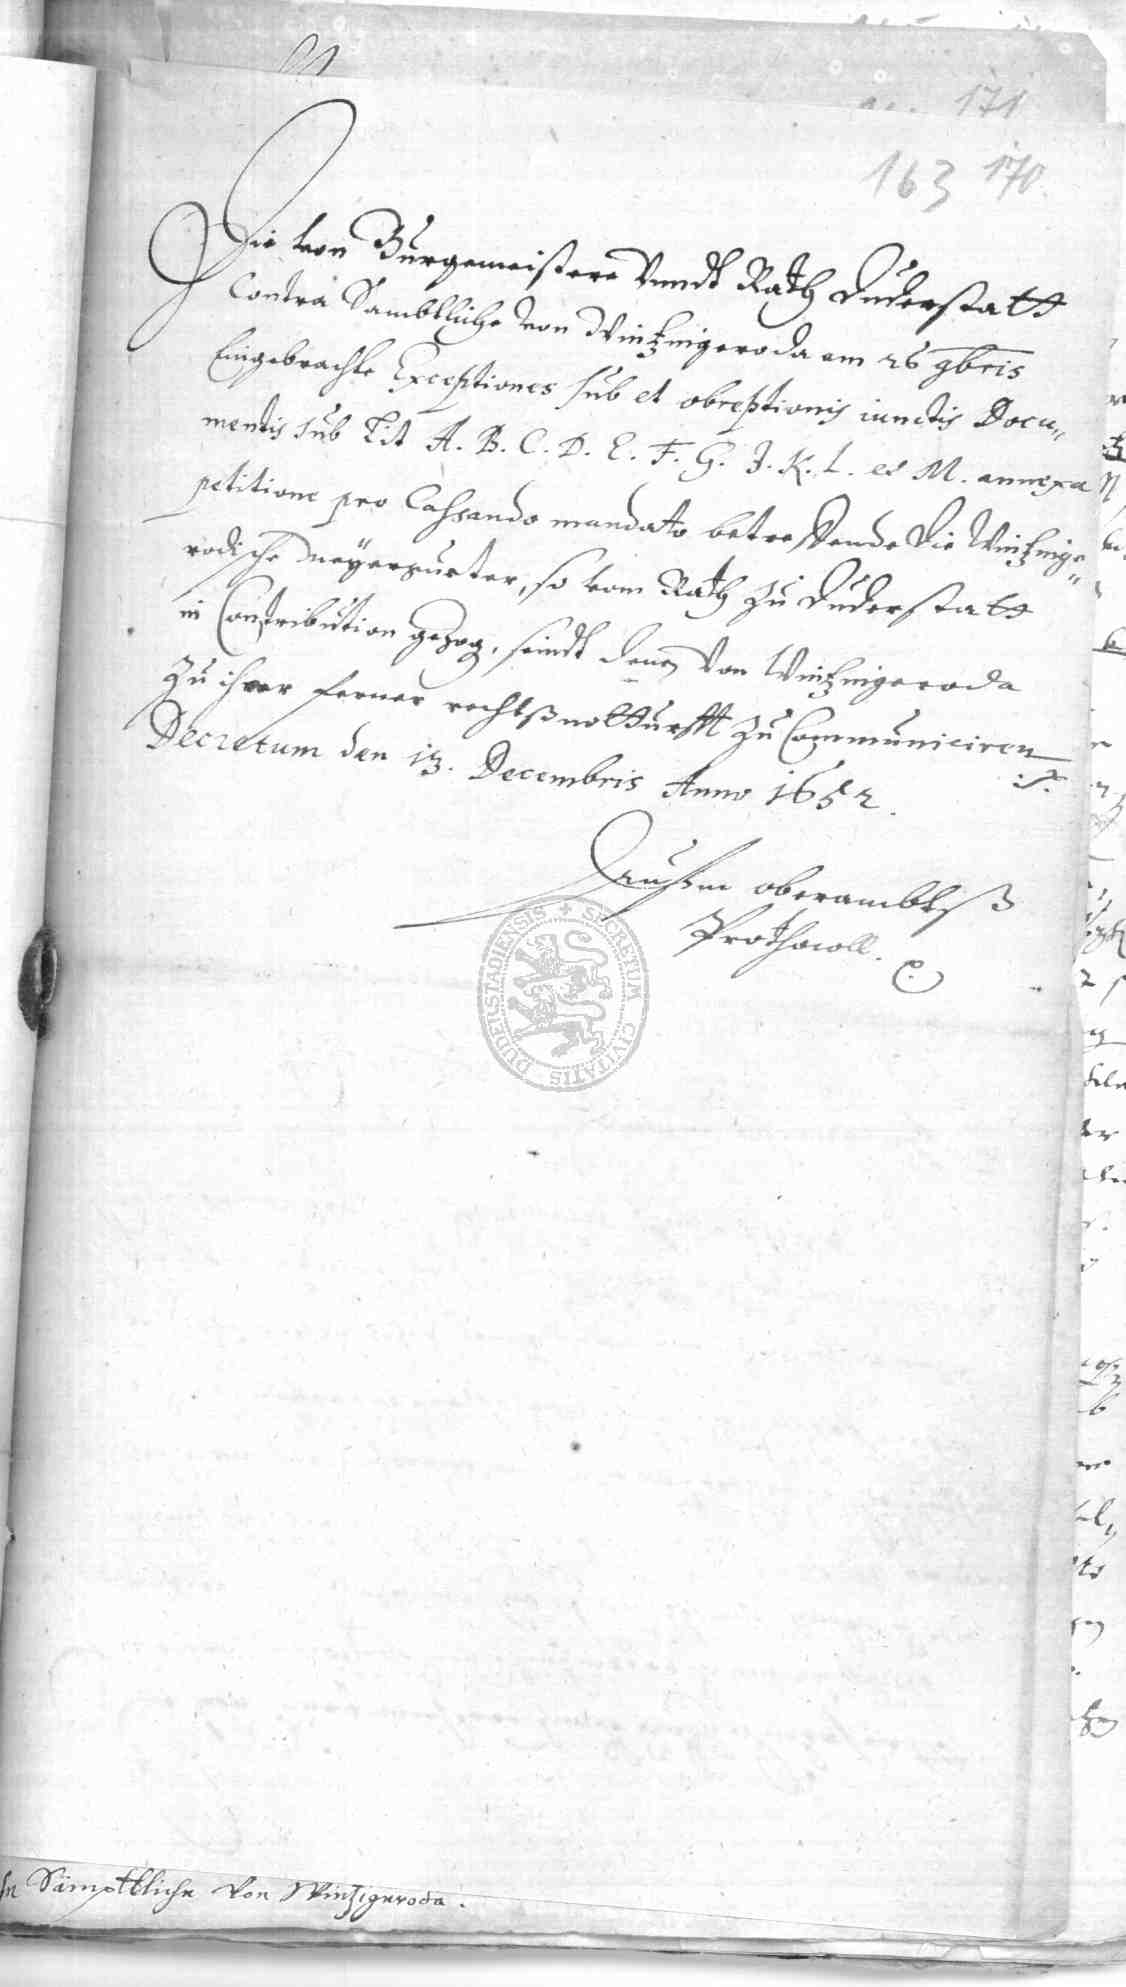 171
163 170.
Die von Burgemeistere Vnndt Rath Duderstatt
Contra Sambtliche von Wintzingeroda am 26 9bris
Eingebrachte Exceptiones sub et obreptionis iunctis Docu„
mentis sub Lit A. B. C. D. E. F. G. J. K. L. et M. annexa
petitione pro Cassando mandato betreffende die Wintzinge„
rodische Meyergueter, so vom Rath zu Duderstatt
in Contribution gezog, seindt denen Von Wintzingeroda
zu ihrer ferner rechtßnotturfft zu Communiciren
Decretum den 13. Decembris Anno 1652.
Außm oberambtß
Prothocoll.
SECRETUM CIVITATIS DUDERSTADIENSIS
Sämptliche von Wintzigeroda.